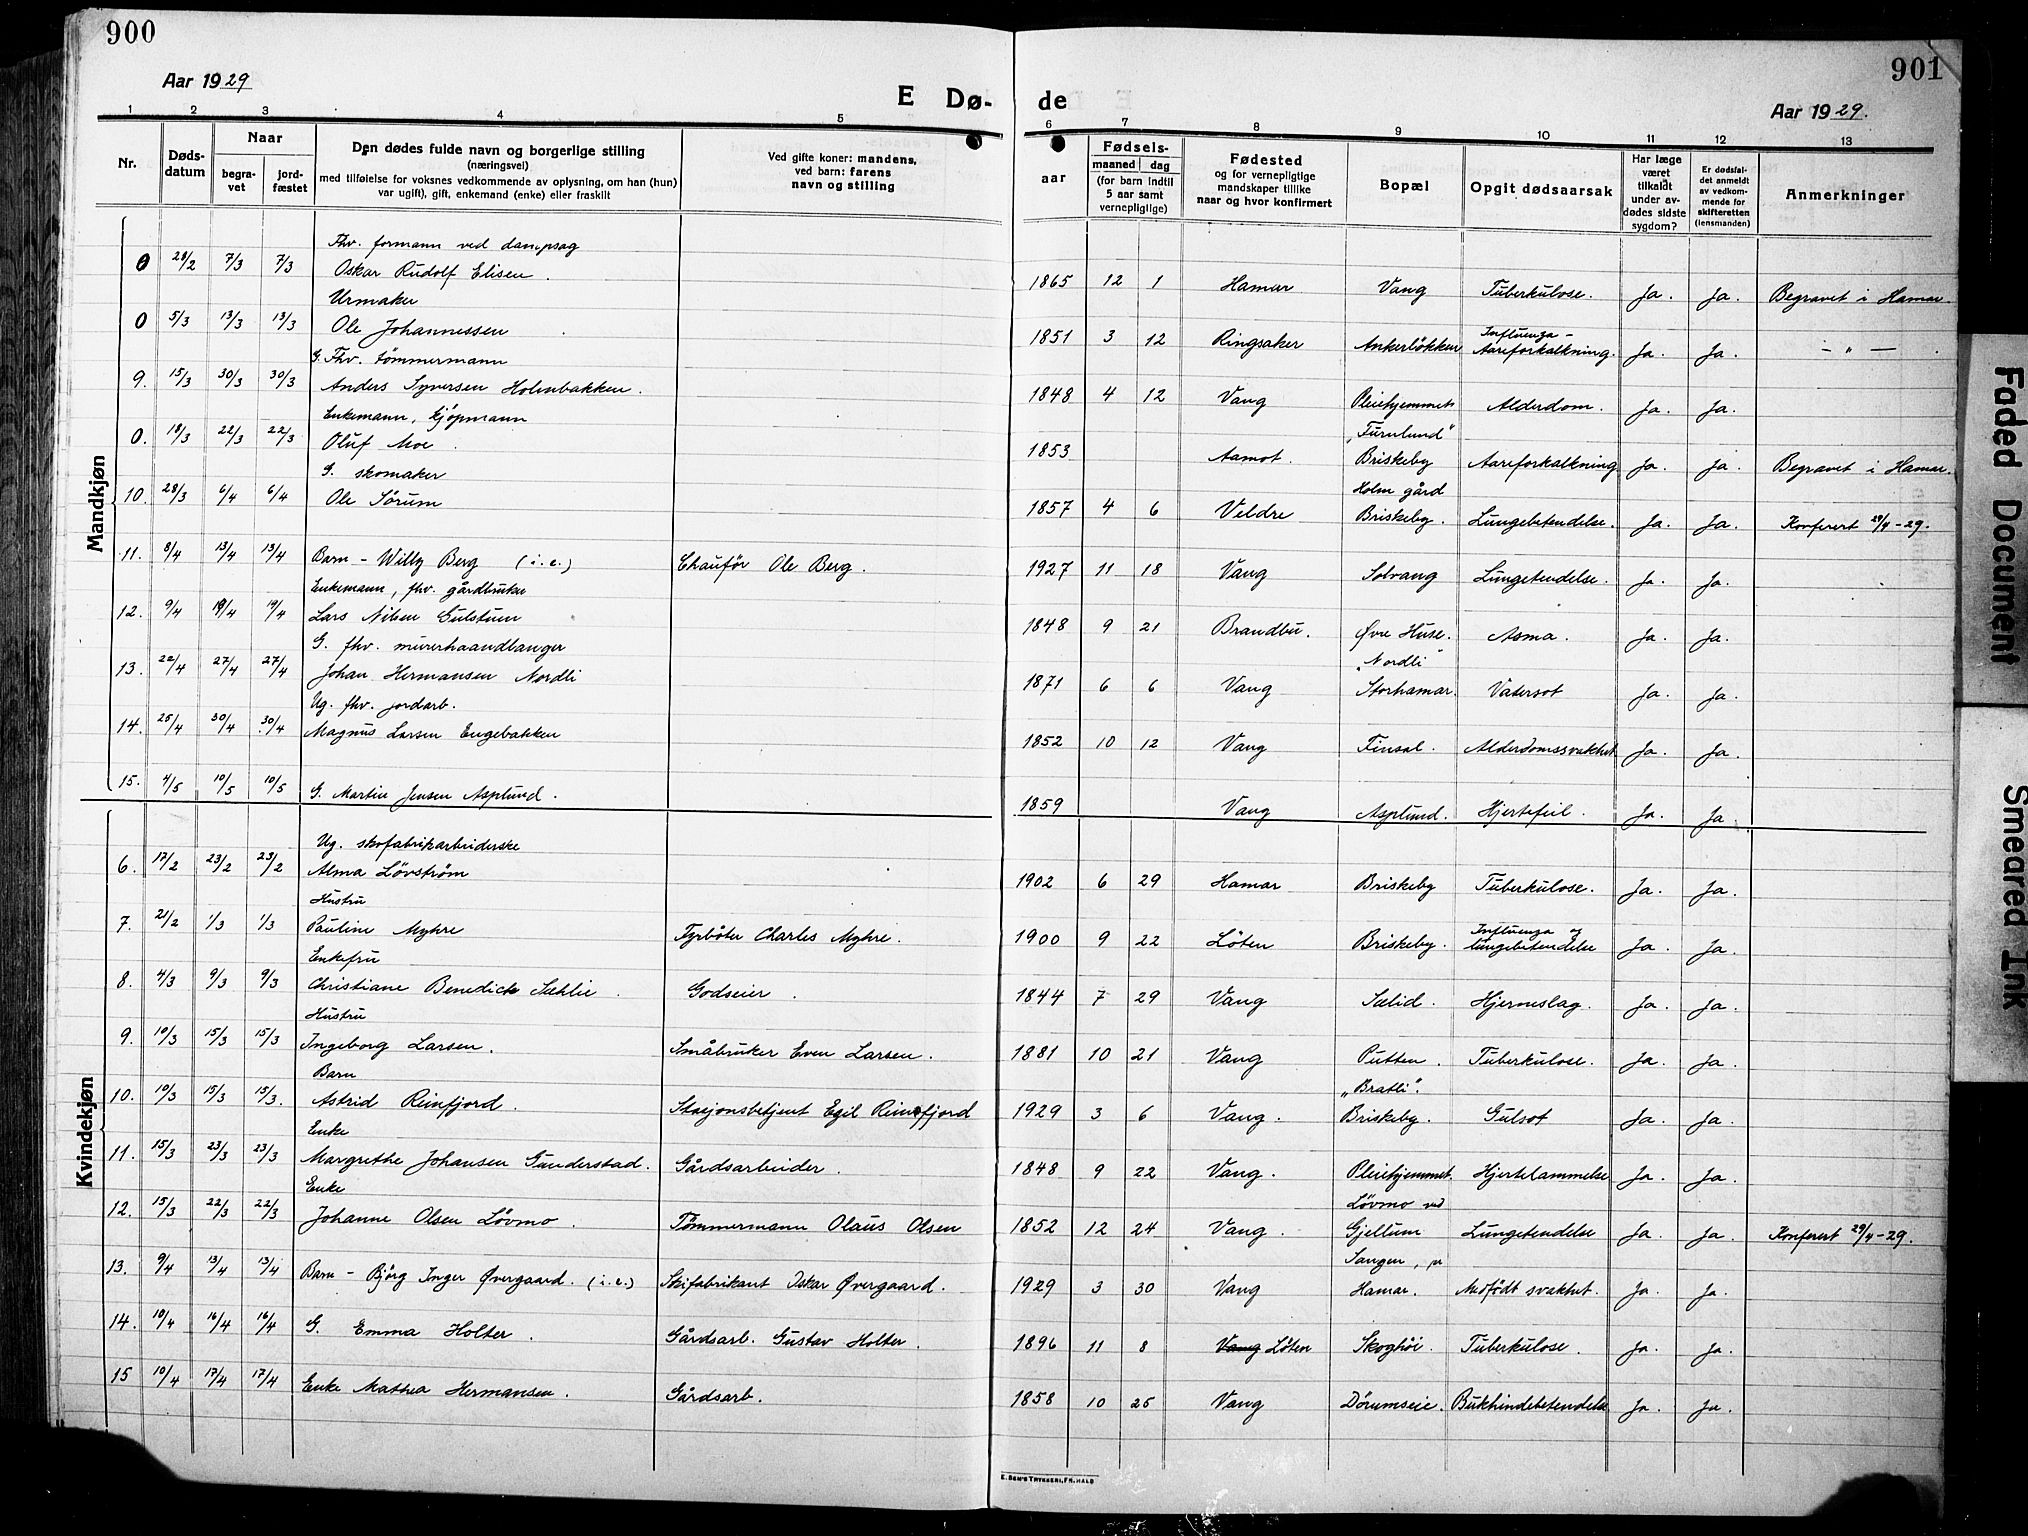 900
901
Aar 1929
E Dø-
de
Aar 1929.
1 2 3 4 5 6 7 8 9 10 11 12 13
Nr.
Døds-
datum
Naar
begra-
vet
jord-
fæstet
Den dødes fulde navn og borgerlige stilling
(næringsvei)
med tilføielse for voksnes vedkommende av oplysning, om han (hun)
var ugift), gift, enkemand (enke) eller fraskilt
Ved gifte koner: mandens,
ved barn: farens
navn og stilling
Fødsels-
aar
maaned dag
(for barn indtil
5 aar samt
vernepligtige)
Fødested
og for vernepligtige
mandskaper tillike
naar og hvor konfirmert
Bopæl
Opgit dødsaarsak
Har læge
været
tilkaldt
under av-
dødes sidste
sygdom?
Er dødsfal-
det anmeldt
av vedkom-
mende for
skifteretten
(lensmanden)
Anmerkninger
Mandkjøn
Fhv. formann ved dampsag
0 28/2 7/3 7/3 Oskar Rudolf Elisen. 1865 12 1 Hamar Vang Tuberkulose. Ja. Ja. Begravet i Hamar.
Urmaker
0 5/3 13/3 13/3 Ole Johannessen 1851 3 12 Ringsaker Ankerløkken Influenza - Aareforkalkning. Ja. Ja. — " —
G. Fhv. tømmermann
9. 15/3 30/3 30/3 Anders Syversen Holmbakken. 1848 4 12 Vang Pleiehjemmet Alderdom. Ja. Ja.
Enkemann, kjøpmann
0. 18/3 22/3 22/3 Oluf Moe. 1853 Aamot. "Furulund" Briskeby Aareforkalkning Ja. Ja. Begravet i Hamar.
G. skomaker
10. 28/3 6/4 6/4 Ole Sørum 1857 4 6 Veldre Holm gård Briskeby. Lungebetendelse. Ja. Ja. Konferert 29/4-29.
11. 8/4 13/4 13/4 Barn - Willy Berg (i.e.) Chaufør Ole Berg. 1927 11 18 Vang Solvang Lungetendelse. Ja. Ja.
Enkemann, fhv. gårdbruker
12. 9/4 19/4 19/4 Lars Nilsen Gulstuen 1848 9 21 Brandbu. Øvre Huse. Asma. Ja. Ja.
G. fhv. murerhaandlanger
13. 22/4 27/4 27/4 Johan Hermansen Nordli 1871 6 6 Vang "Nordli" Storhamar. Vatersot Ja. Ja.
Ug. fhv. jordarb.
14. 25/4 30/4 30/4 Magnus Larsen Engebakken 1852 10 12 Vang Finsal. Alderdomssvakhet Ja. Ja.
15. 4/5 10/5 10/5 G. Martin Jensen Asplund. 1859 Vang Asplund. Hjertefeil. Ja. Ja
Kvindekjøn
Ug. skofabrikarbeiderske
6. 17/2 23/2 23/2 Alma Løvstrøm 1902 6 29 Hamar Briskeby Tuberkulose. Ja. Ja.
Hustru
7. 21/2 1/3 1/3 Pauline Myhre Fyrbøter Charles Myhre. 1900 9 22 Løten Briskeby. Influenza og lungebetendelse Ja. Ja.
Enkefru
8. 4/3 9/3 9/3 Christiane Benedicte Sæhlie. Godseier. 1844 7 29 Vang Sælid. Hjerneslag. Ja. Ja.
Hustru
9. 10/3 15/3 15/3 Ingeborg Larsen. Småbruker Even Larsen. 1881 10 21 Vang Putten. Tuberkulose. Ja. Ja.
Barn
10. 10/3 15/3 15/3. Astrid Reinfjord. Stasjonsbetjent Egil Reinfjord 1929 3 6 Vang. "Bratli". Briskeby. Gulsot Ja. Ja.
Enke
11. 15/3 23/3 23/3 Margrethe Johansen Gunderstad. Gårdsarbeider. 1848 9 22 Vang. Pleiehjemmet. Hjertelammelse Ja. Ja.
Enke
12. 15/3 22/3 22/3 Johanne Olsen Løvmo. Tømmermann Olaus Olsen 1852 12 24 Vang. Løvmo ved Gjellum Lungetendelse Ja. Ja. Konferert 29/4-29.
13. 9/4 13/4 13/4 Barn - Bjørg Inger Øvergaard. (i.e.) Skifabrikant Oskar Øvergaard. 1929 3 30 Vang Sangen, pr Hamar. Medfødt svakhet. Ja. Ja.
14. 10/4 16/4 16/4 G. Emma Holter. Gårdsarb. Gustav Holter. 1896 11 8 Vang Løten Skoghøi. Tuberkulose. Ja. Ja.
15 10/4 17/4 17/4 Enke Mathea Hermansen. Gårdsarb. 1858 10 25 Vang Dørumseie. Bukhindebetendelse Ja. Ja.
E. SEM'S TRYKKERI, FR.HALD
Faded Document
Smeared Ink